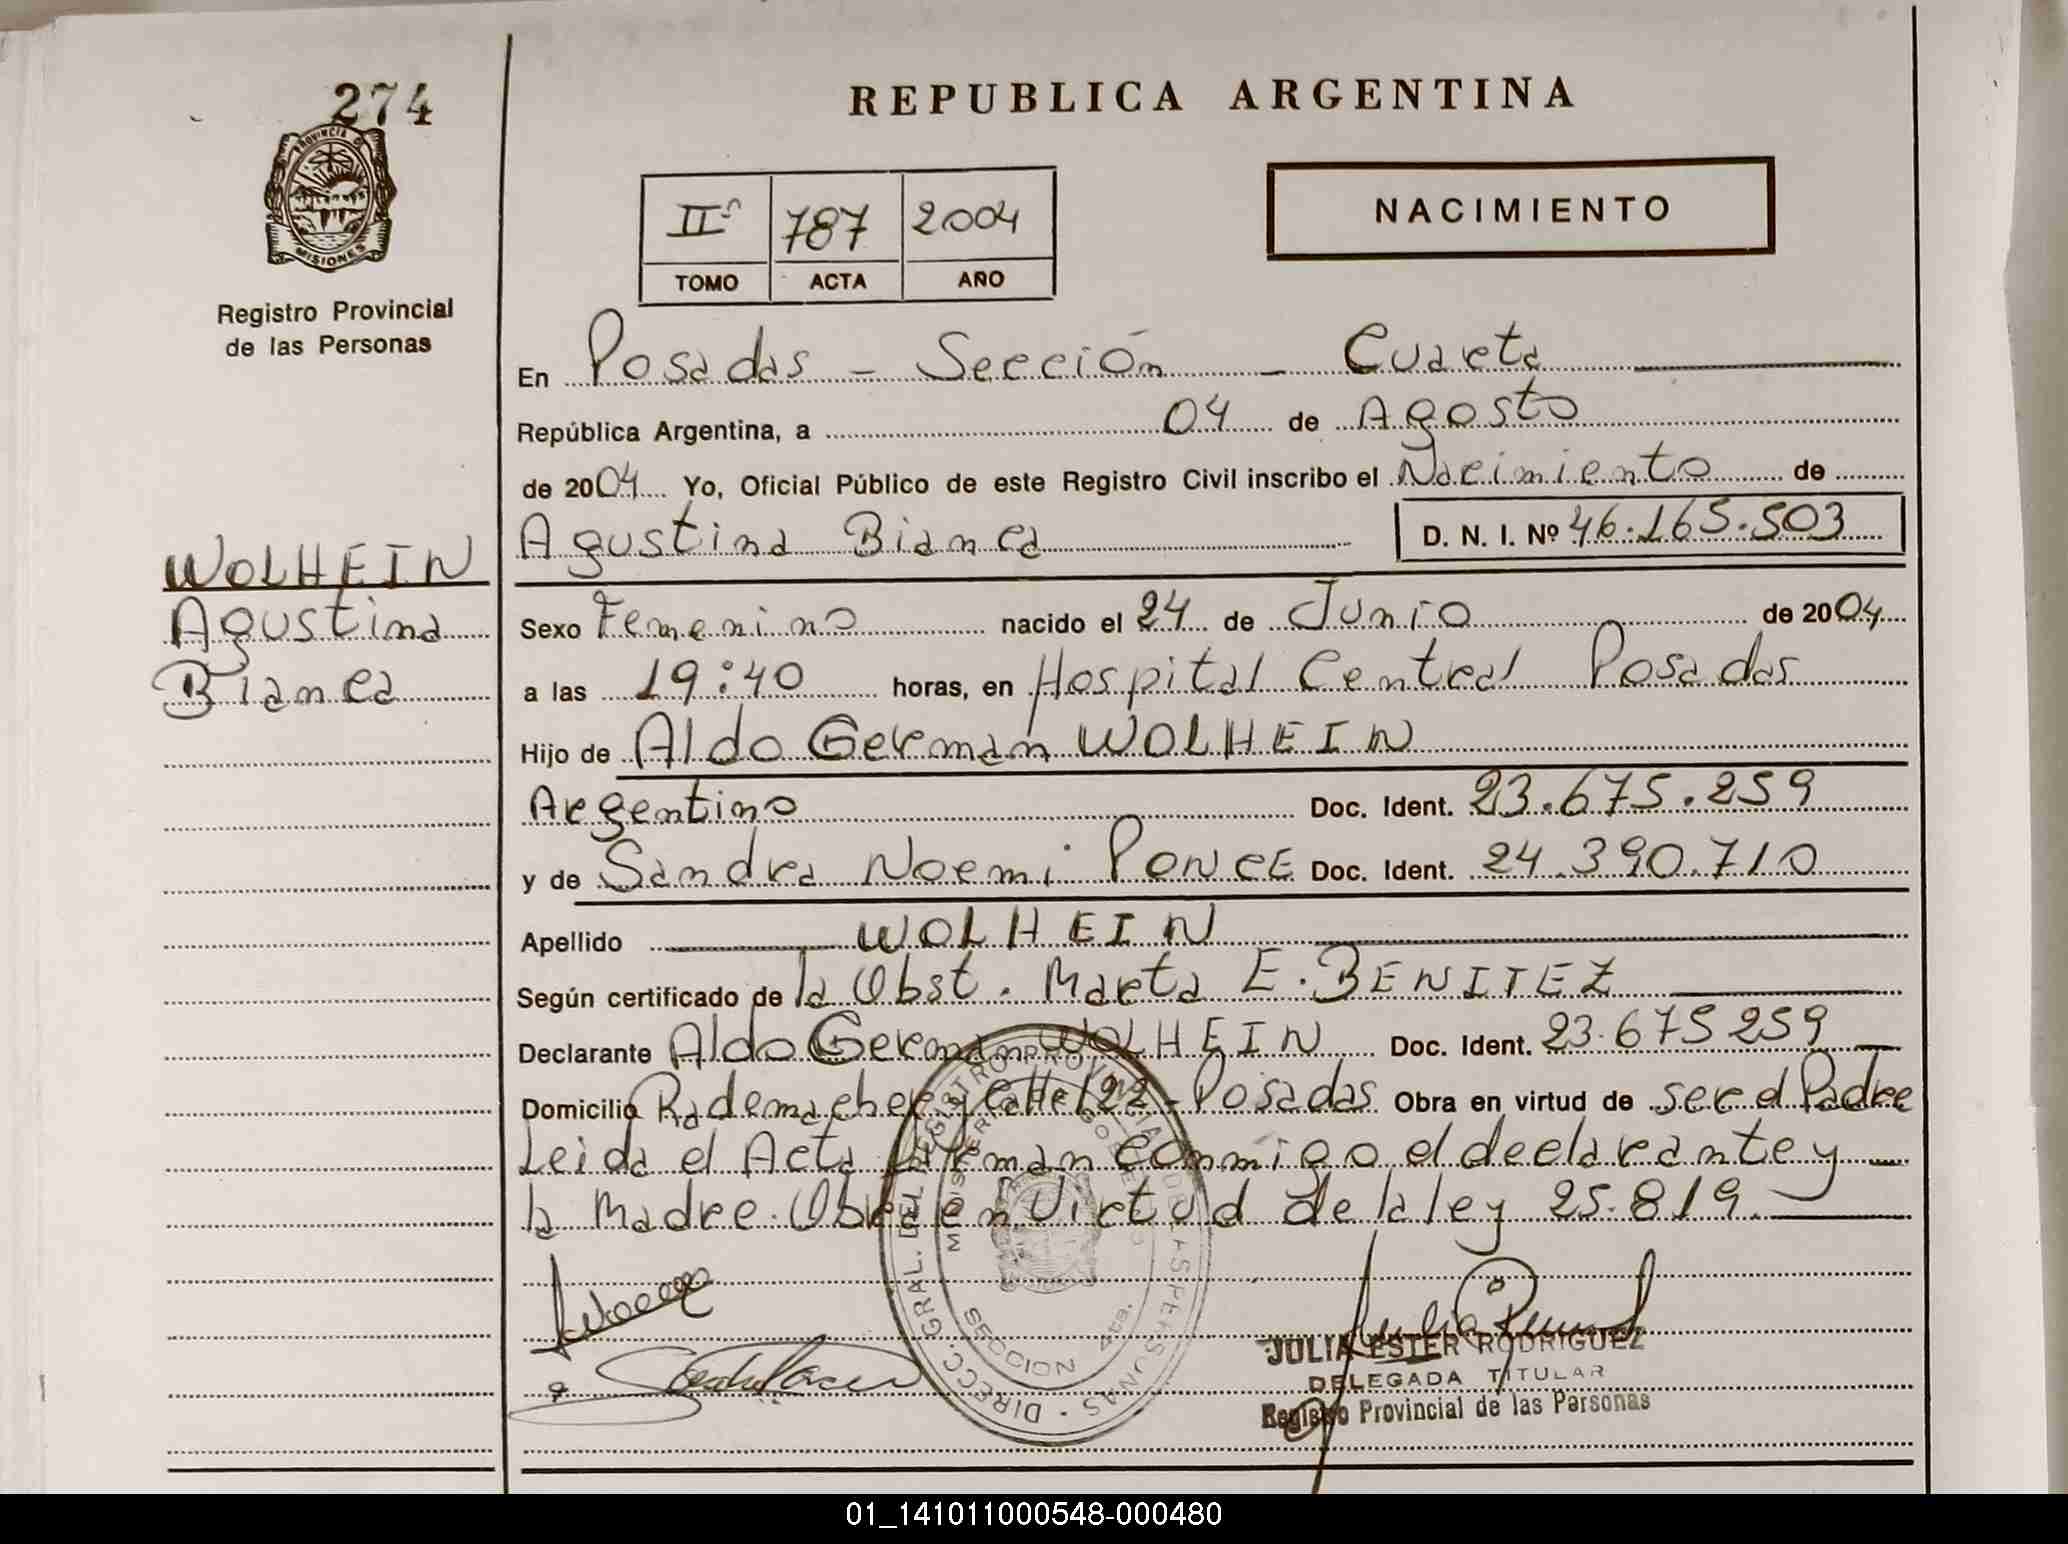 274
PROVINCIA DE
MISIONES
Registro Provincial
de las Personas
WOLHEIN
Agustina
Bianca
REPUBLICA ARGENTINA
IIº 787 2004
TOMO ACTA AÑO
NACIMIENTO
En Posadas - Sección - Cuarta
República Argentina, a 04 de Agosto
de 2004 Yo, Oficial Público de este Registro Civil inscribo el Nacimiento de
Agustina Bianca D. N. I. Nº 46.165.503
Sexo Femenino nacido el 24 de Junio de 2004
a las 19:40 horas, en Hospital Central Posadas
Hijo de Aldo German WOLHEIN
Argentino Doc. Ident. 23.675.259
y de Sandra Noemi PONCE Doc. Ident. 24.390.710
Apellido WOLHEIN
Según certificado de la Obst. Marta E. BENITEZ
Declarante Aldo German WOLHEIN Doc. Ident. 23.675259
Domicilio Rademacher y Calle 122 - Posadas Obra en virtud de ser el Padre
Leida el Acta la firman conmigo el declarante y
la Madre. Obra en Virtud de la ley 25.819.
DIRECC. GRAL. DEL REGISTRO PROVINCIAL DE LAS PERSONAS
SECCION 4ta.
JULIA ESTER RODRIGUEZ
DELEGADA TITULAR
Registro Provincial de las Personas
01_141011000548-000480